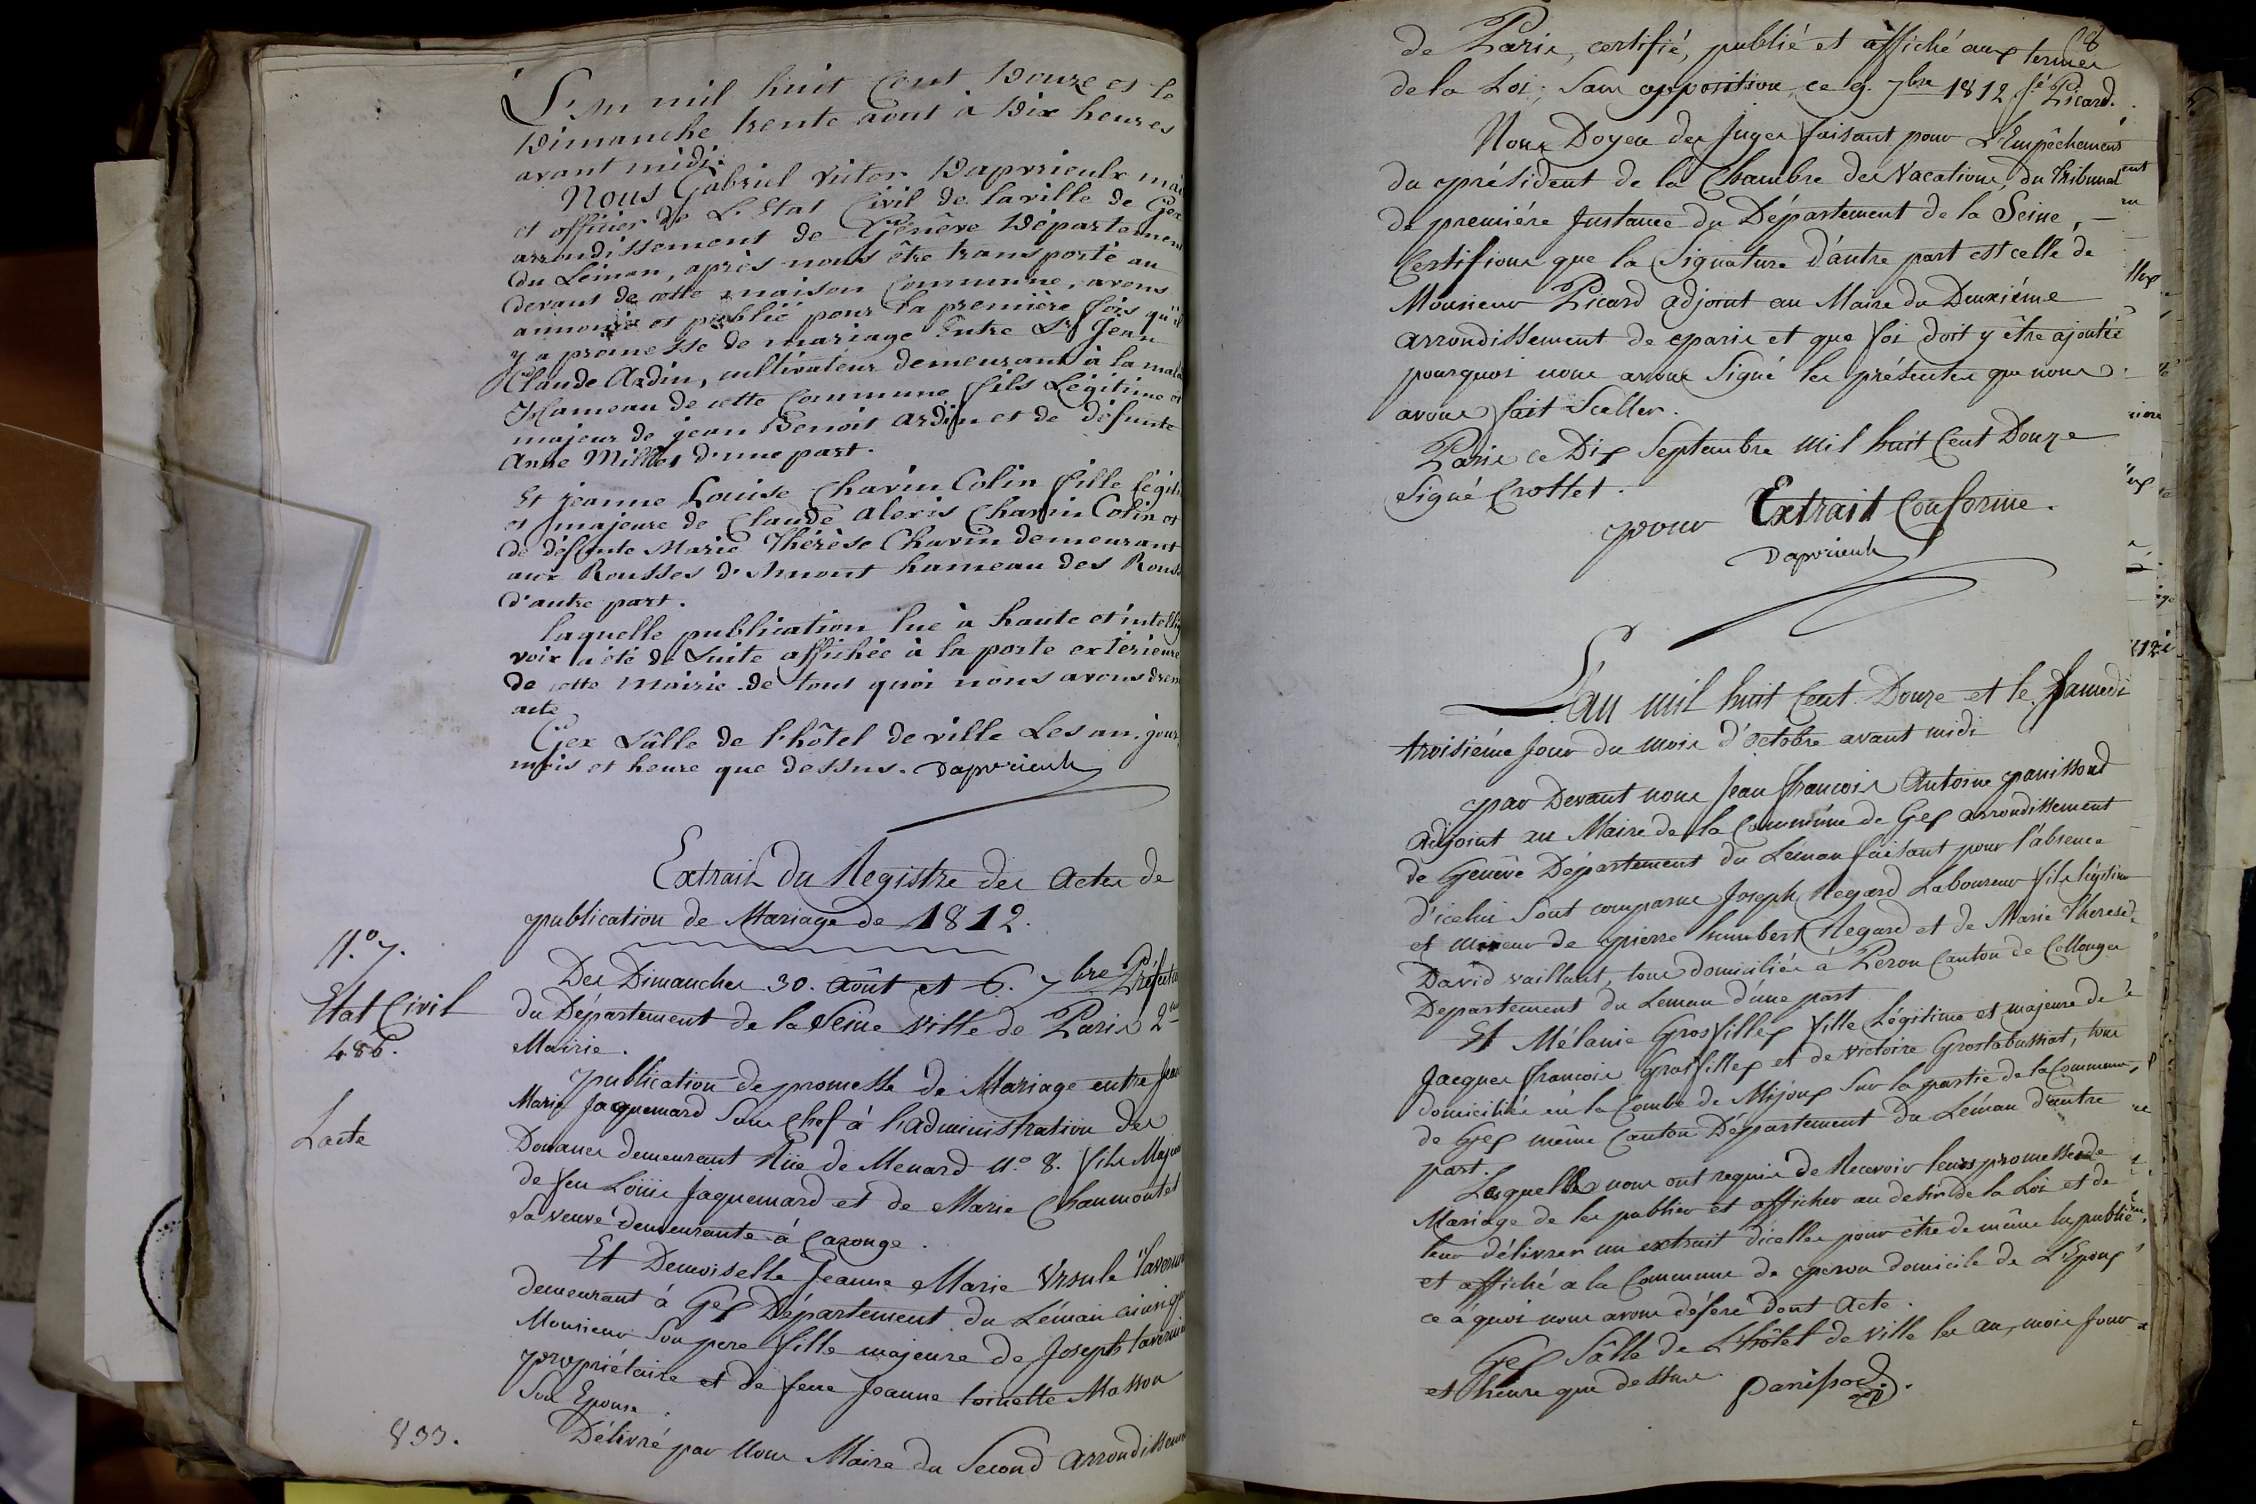 L'an mil huit Cent Douze et le
Dimanche trente aout à Dix heures
avant midi.
Nous Gabriel Victor Daprieulx mai
et officier de L'Etat Civil de la ville de Gex
arrondissement de Genêve Département
du Léman, après nous être transporté au
devant de cette maison Commune, avons
annoncé et publié pour la première fois qu'il
y a promesse de mariage Entre Sr Jean
Claude Ardin, cultivateur demeurant à la
Hameau de cette Commune fils Légitime et
majeur de jean Benoit Ardin et de défunte
Anne d'une part.
Et jeanne Louise Chavin Colin fille légit
et majeure de Claude Alexis Chavin Colin et
de défunte Marie Thérèse Chavin demeurant
aux Rousses d'Amont hameau des Rouss
d'autre part.
laquelle publication lue à haute et intellig
voix a été de suite affichée à la porte extérieure
de cette Mairie. de tout quoi nous avons dres
acte
Gex Sâlle de l'hôtel de ville Les an. jour,
mois et heure que dessus. Daprieulx
Extrait du Registre des Actes de
publication de Mariage de 1812.
N.o 7.
Etat Civil
486.
Lacte
Des Dimanches 30. Août et 6. 7bre Préfectu
du Département de la Seine Ville de Paris 2me
Mairie.
publication de promesse de Mariage entre Jean
Marie Jaquemard Sous Chef à l'administration des
Douanes demeurant Rüe de Menard N.o 8. fils Majeur
de feu Loüis Jaquemard et de Marie Chaumontet
sa veuve demeurante à Carouge.
Et Demoiselle Jeanne Marie Ursule
demeurant à Gex Département du Léman ainsi que
Monsieur Son pere fille majeure de Joseph
propriétaire et de feue Jeanne toinette Masson
Son Epouse.
833.
Délivré par Nous Maire du Second Arrondissem
68
de Paris, certifié, publié et affiché aux termes
de la Loi; Sans opposition ce 9. 7bre 1812 sé Picard.
Nous Doyen des Juges faisant pour L'Empêchement
du président de la Chambre des Vacations, du Tribunal
de premiére Instance du Département de la Seine, —
Certifions que la Signature d'autre part est celle de
Monsieur Picard adjoint au Maire du Deuxiéme
arrondissement de paris et que foi doit y être ajoutée
pourquoi nous avons Signé les présentes que nous
avons fait Sceller.
Paris ce Dix Septembre mil huit Cent Douze
Signé Crottet.
pour Extrait Conforme.
Daprieulx
L'an mil huit Cent Douze et le Samedi
troisiéme Jour du mois d'octobre avant midi
par Devant nous Jean francois Antoine panissod
Adjoint au Maire de la Commune de Gex arrondissement
de Genêve Département du Léman faisant pour l'absence
d'icelui Sont comparus Joseph Regard Laboureur fils légitime
et mineur de pierre humbert Regard et de Marie Therese
David vaillant, tous domiciliés à Peron Canton de Collonges
Departement du Leman d'une part
Et Mélanie Grosfillex fille Légitime et majeure de
Jacques francois Grosfillex et de victoire Grostabussiat, tous
domiciliés en la Combe de Mijoux Sur la partie de la Commune
de Gex même Canton Département du Léman d'autre
part.
Lesquels nous ont requis de Recevoir leurs promesses de
Mariage de les publier et afficher au desir de la Loi et de
leur délivrer un extrait dicelles pour être de même lu, publié
et affiché a la Commune de peron domicile de L'Epoux
ce à quoi nous avons déferé Dont Acte.
Gex Sâlle de L'hôtel de ville les an, mois Jour
et heure que dessus panissod